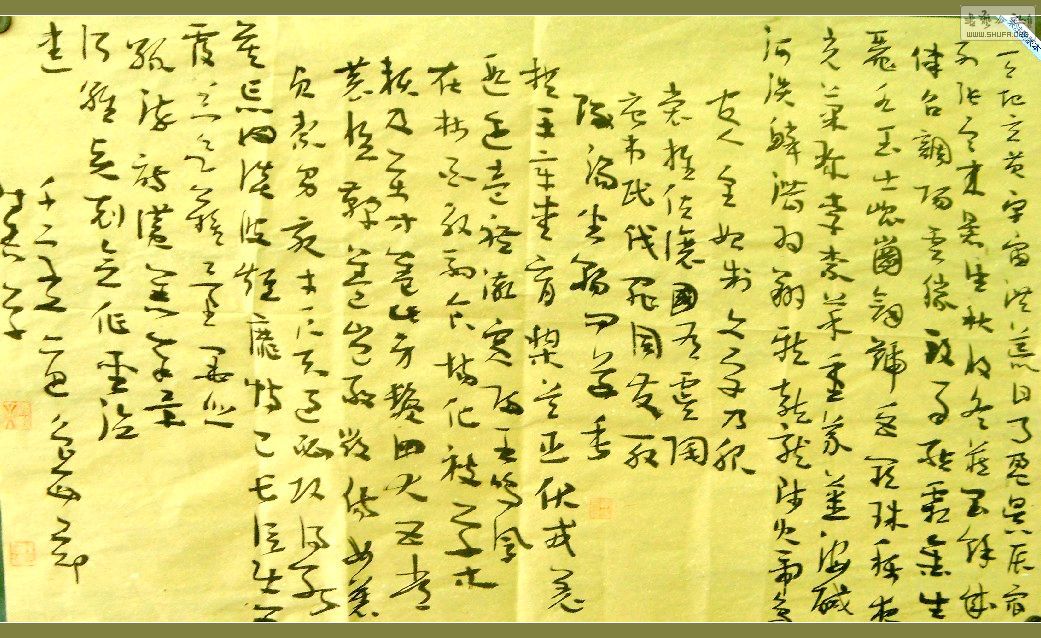 天地玄黄宇宙洪荒日月盈昃辰宿
列张寒来暑往秋收冬藏闰餘成
律召調陽雲騰致雨結霜金生
麗水玉出崑崗劍號巨闕珠稱夜
光菓珍李柰菜重芥薑海鹹
河淡鱗潛羽翔龍師火帝鳥
人皇始制文字乃服
裳推位讓國有虞陶
唐弔民伐罪周發殷
湯坐朝問道垂
拱平章愛育黎首臣伏戎羌
遐邇壹體率賓歸王鳴鳳
在樹白駒食場化被草木
賴及萬方蓋此身髮四大五常
恭惟鞠養豈敢毀傷女慕
貞絜男效才良知過必改得能
莫忘罔談彼短靡恃己長信使可
覆器欲難量墨悲
絲染詩讚羔羊景
行維賢剋念作聖
建
WWW.SHUFA.ORG